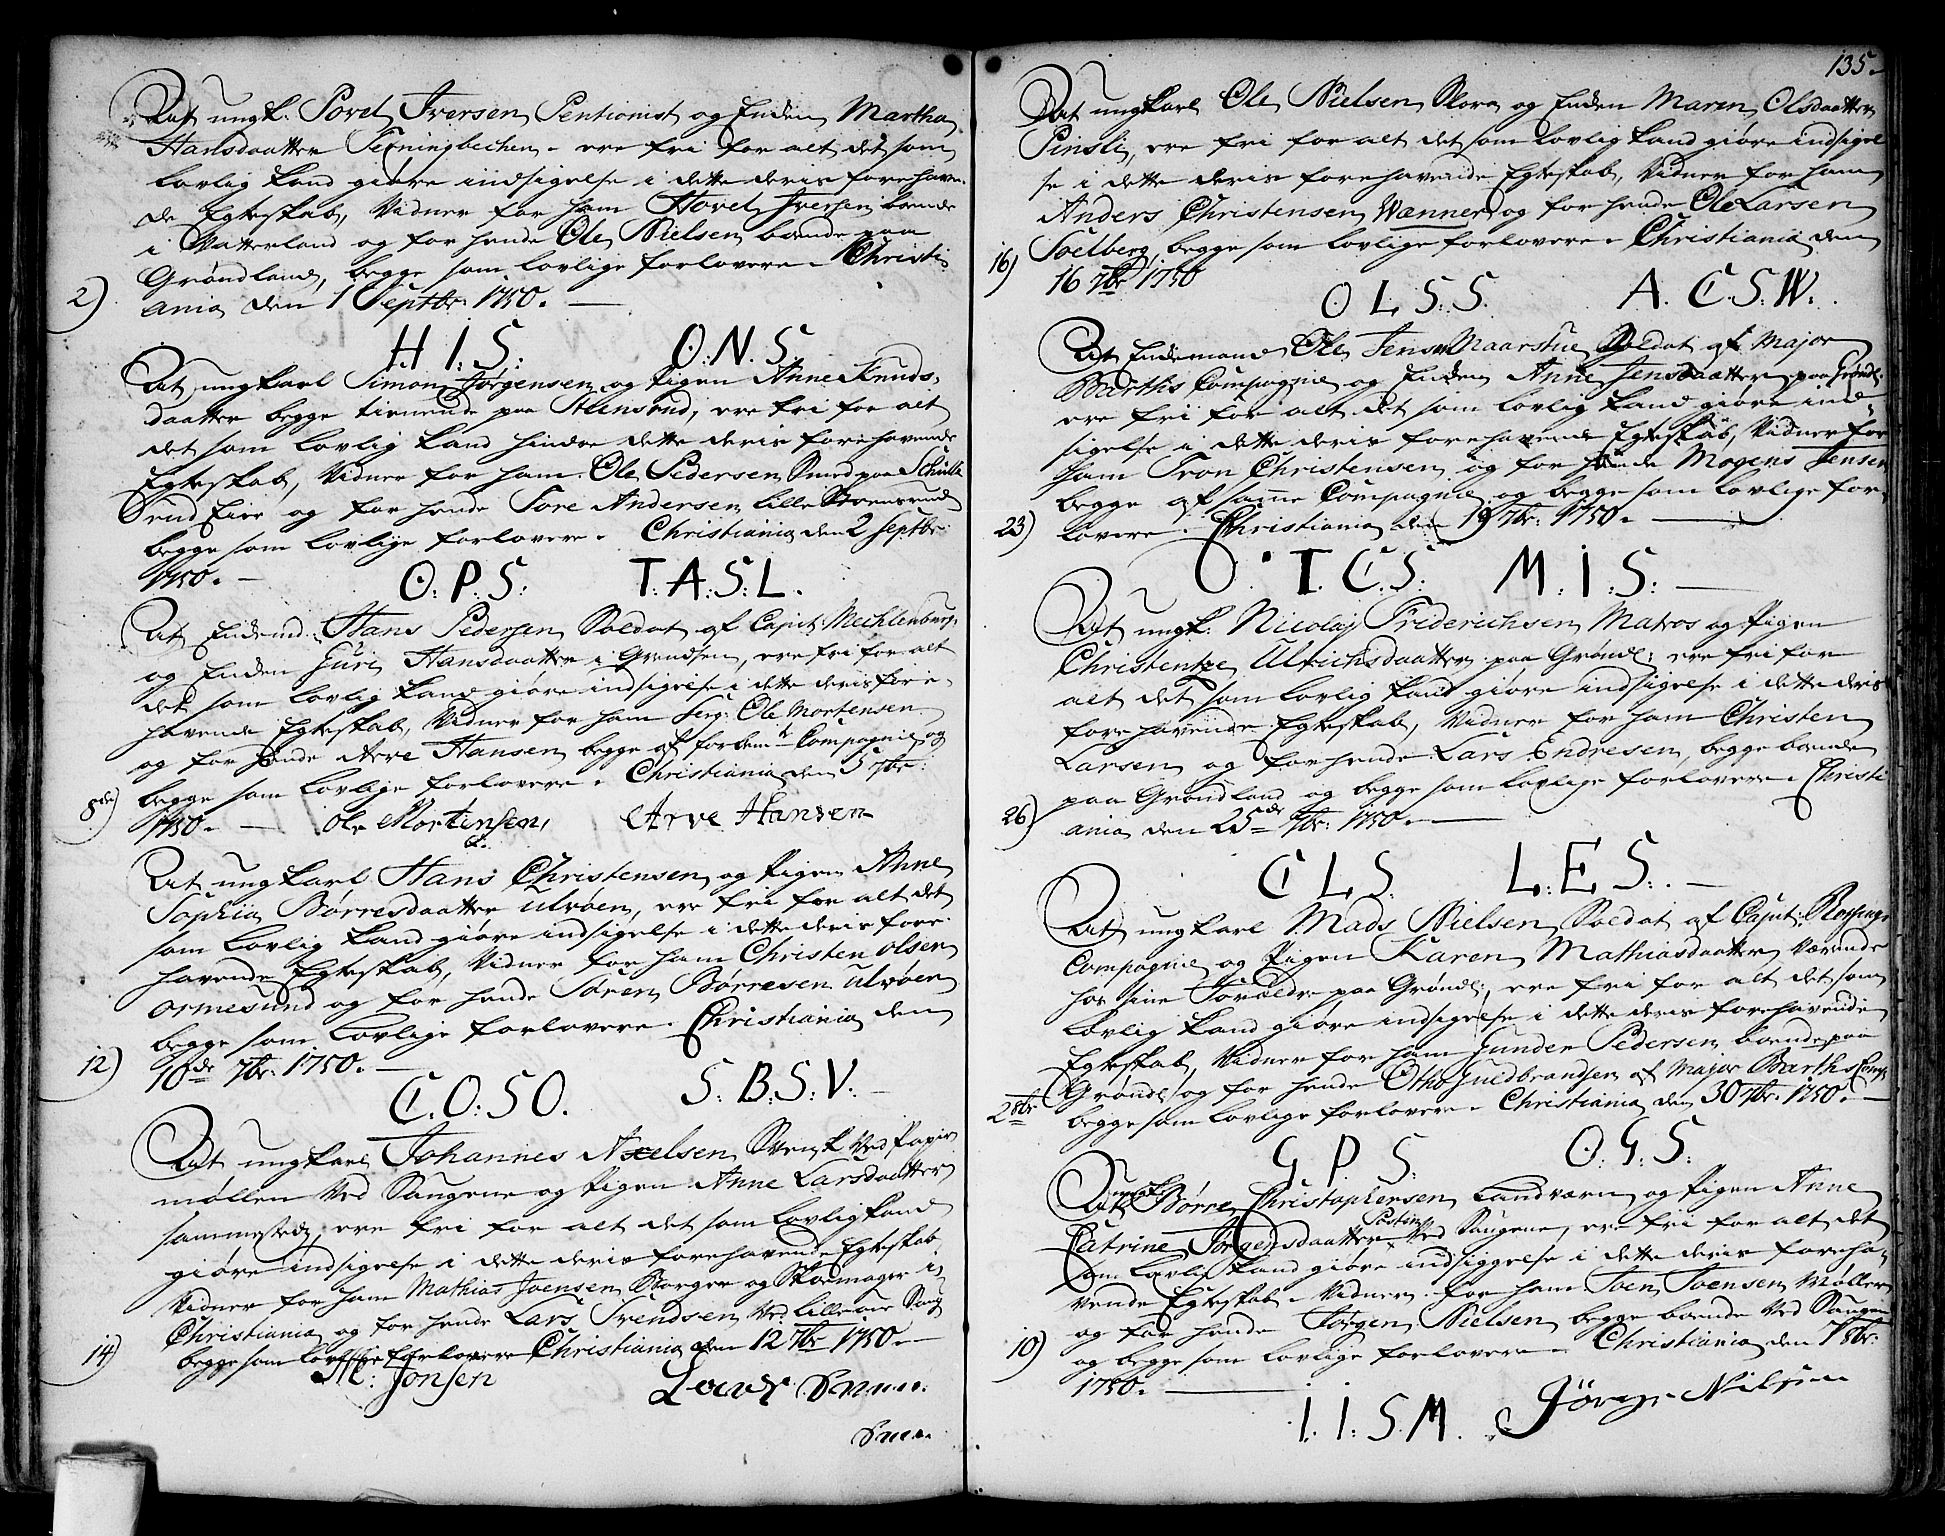 At ungk. Povel Iversen Pentionist og Enken Martha
Hansdaatter Terningbechen ere fri for alt det som
lovlig kand giøre indsigelse i dette deris forehaven-
de Egteskab, Vidner for ham Hovel Iversen boende
i Vatterland og for hende Ole Nielsen boende paa
Grøndland, begge som lovlige forlovere. Christi-
2) ania den 1 Septbr: 1750.
H. I. S: O: N. S.
At ungkarl Simon Jørgensen og Pigen Anne Knuds-
daatter begge tienende paa Stensrud, ere fri for alt
det som lovlig kand hindre dette deris forehavende
Egteskab, Vidner for ham Ole Pedersen Smed paa
rud Eier og for hende Tore Andersen Lille Stensrud
begge som lovlige forlovere. Christiania den 2 Septbr:
1750.
O. P. S: T: A. S: L.
At Enkemd. Hans Pedersen Soldat af Capit: Mechlenburg
og Enken Guri Hansdaatter i Grendsen, ere fri for alt
det som lovlig kand giøre indsigelse i dette deris fore-
havende Egteskab, Vidner for ham Serg: Ole Mortensen
og for hende Arve Hansen begge af forbemte Compagnie og
begge som lovlige forlovere. Christiania den 5 7br:
8de) 1750. Ole Mortensen, Arve Hansen
At ungkarl Hans Christensen og Pigen Anne
Sophia Børresdaatter Ulvøen, ere fri for alt det
som lovlig kand giøre indsigelse i dette deris fore-
havende Egteskab, Vidner for ham Christen Olsen
Ormesund og for hende Søren Børresen Ulvøen
begge som lovlige forlovere. Christiania den
12) 10de 7br: 1750.
C. O: S O. S. B: S. V.
At ungkarl Johannes Axelsen Svensk ved Papiir
møllen ved Saugene og Pigen Anne Larsdaatter
sammesteds, ere fri for alt det som lovlig kand
giøre indsigelse i dette deris forehavende Egteskab
Vidner for ham Mathias Joensen Borger og Skoemager i
Christiania og for hende Lars Svendsen ved Lilleaae Saug
14) begge som lovlige forlovere Christiania den 12 7br 1750.
M: Jonsen
135.
At ungkarl Ole Nielsen Slora og Enken Maren Olsdaatter
Pinsli, ere fri for alt det som lovlig kand giøre indsigel
se i dette deris forehavende Egteskab, Vidner for ham
Anders Christensen Wanner og for hende Ole Larsen
16) Soelberg, begge som lovlige forlovere. Christiania den
16 7br 1750
O L S S. A. C. S. W.
At Enkemand Ole Jensen Maarstue Soldat af Major
Barths Compagnie og Enken Anne Jensdaatter paa Grøndl
ere fri for alt det som lovlig kand giøre ind-
sigelse i dette deris forehavende Egteskab, Vidner for
ham Tron Christensen og for hende Mogens Jensen
begge af samme Compagnie og begge som lovlige for-
23) lovere. Christiania den 19 7br: 1750.
T. C. S: M. I. S:
At ungk: Nicolaj Friderichsen Matros og Pigen
Christentze Ulrichsdaatter paa Grøndl: ere fri for
alt det som lovlig kand giøre indsigelse i dette deris
forehavende Egteskab, Vidner for ham Christen
Larsen og for hende Lars Endresen, begge boende
paa Grøndland og begge som lovlige forlovere. Christi
26) ania den 25de 7br: 1750.
C L S. L: E S.
At ungkarl Mads Nielsen Soldat af Capit:
Compagnie og Pigen Karen Mathiasdaatter værende
hos sine Forældre paa Grøndl:, ere fri for alt det som
lovlig kand giøre indsigelse i dette deris forehavende
Egteskab, Vidner for ham Gunder Pedersen boende paa
Grøndl: og for hende Otho Guldbrandsen af Major Barths Comp:
2 8br begge som lovlige forlovere. Christiania den 30 7br: 1750.
G P. S. O. G. S:
At Børre Christophersen Landværn og Pigen Anne
Catrine Jørgensdaatter ved Saugene, ere fri for alt det
som lovlig kand giøre indsiggelse i dette deris foreha-
vende Egteskab. Vidner for ham Joen Joensen Møller
og for hende Jørgen Nielsen begge boende ved Saugene
10) og begge som lovlige forlovere. Christiania den 7 8br:
1750.
I. I: S. M. Jørgen Nilsen